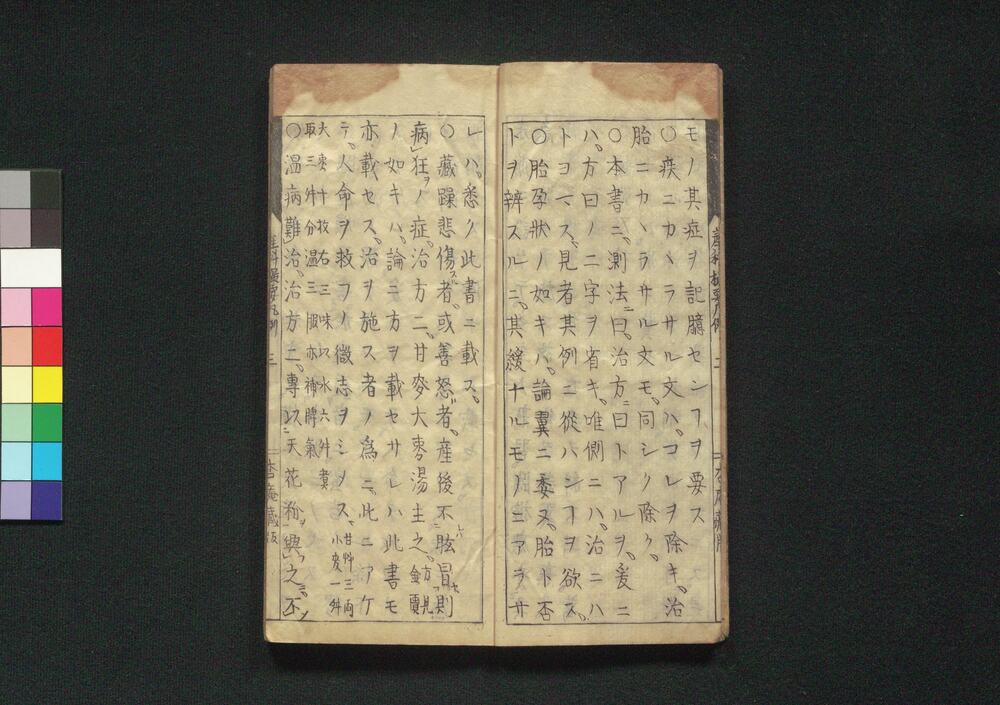 モノ其症ヲ記臆センヿヲ要ス
○疾ニカヽラサル文ハ、コレヲ除キ、治
胎ニカヽラサル文モ、同シク除ク、
○本書ニ、測法曰、治方曰トアルヲ、爰ニ
ハ、方曰ノ二字ヲ省キ、唯側ニハ、治ニハ
トコヽス、見者其例ニ從ハンヿヲ欲ス、
○胎孕狀ノ如キハ、論翼ニ委ヌ、胎ト否
トヲ辨スルニ、其緩ナルモノニアラサ
レハ、悉ク此書ニ載ス、
○藏躁悲傷スル者、或善怒者、産後不眩冒則
病狂ヲノ症、治方ニ、甘麥大棗湯主之、方見金匱
ノ如キハ、論ニ方ヲ載セサレハ此書モ
亦載セス、治ヲ施ス者ノ爲ニ、此ニアケ
テ、人命ヲ救フノ微志ヲシメス、甘艸三両小麥一舛
大棗十枚右三味以水六舛煑
取三舛分温三服亦補脾氣
○温病難治、治方ニ、專以天花粉與之、不
産科 凡例 二
産科 凡例 三 杏庵藏版